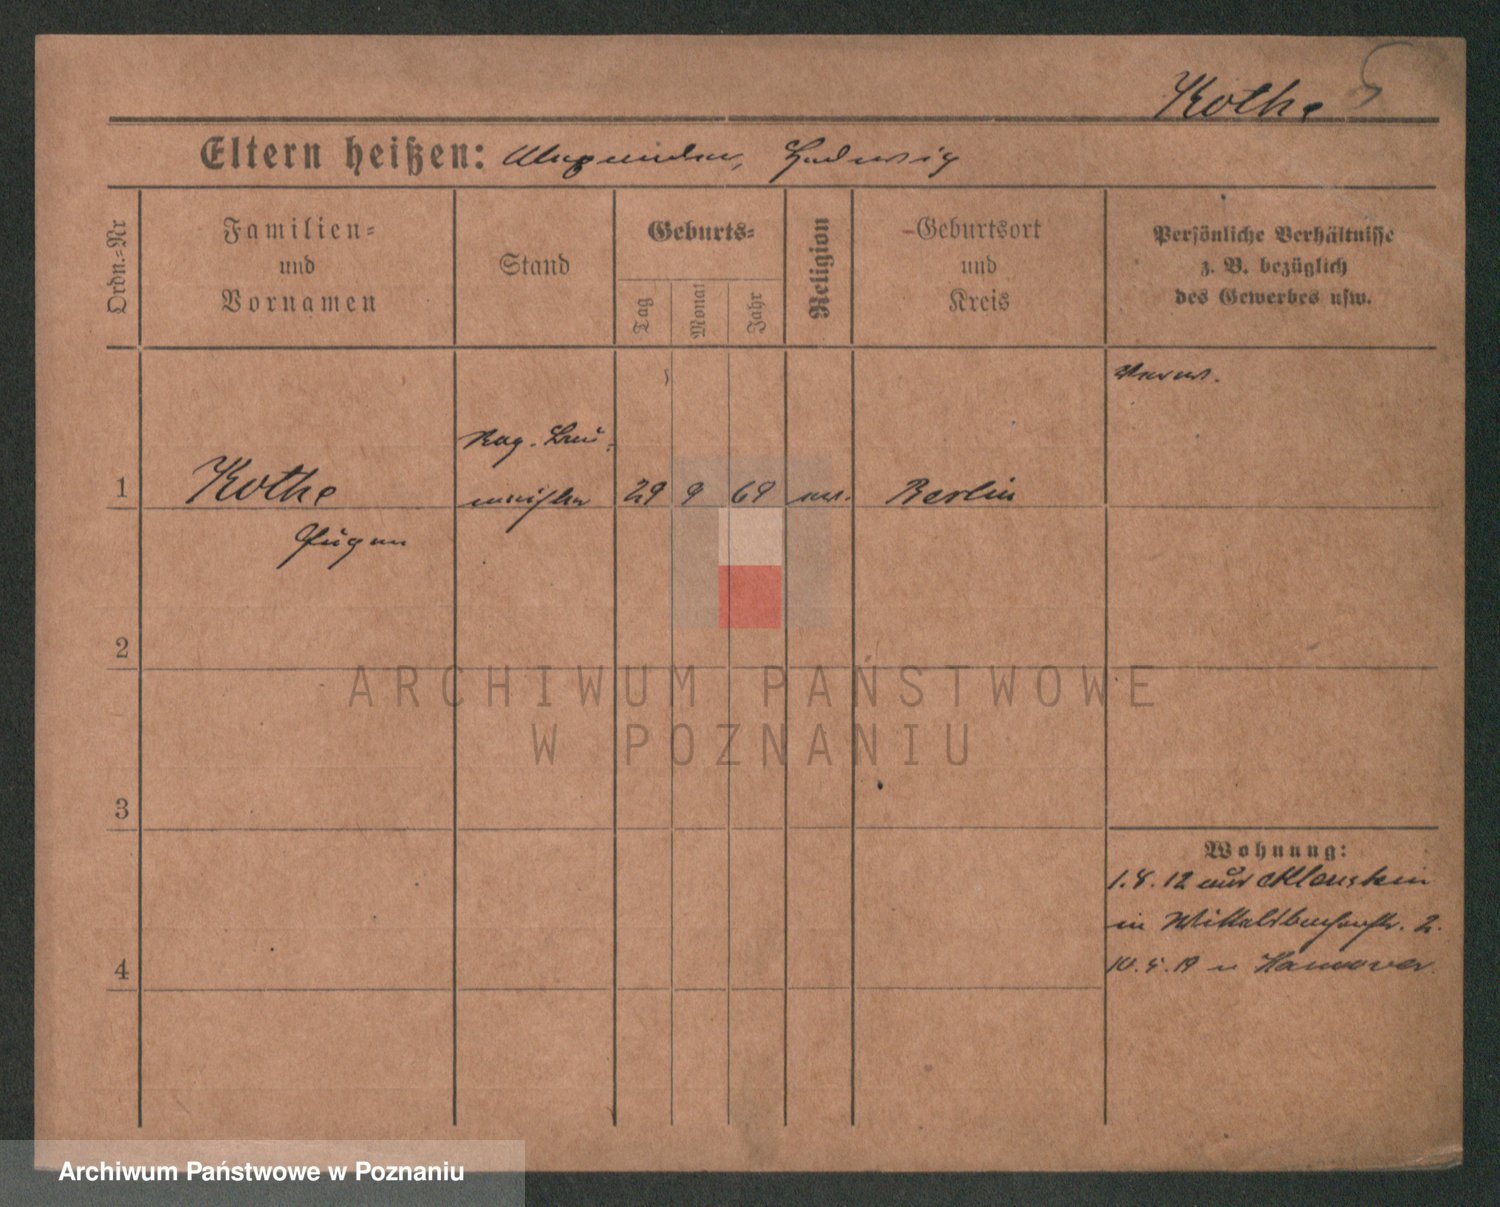 Kothe
Eltern heißen: Alexander, Hedwig
Ordn.=Nr
Familien=
und
Vornamen
Stand
Geburts=
Tag
Monat
Jahr
Religion
Geburtsort
und
Kreis
Persönliche Verhältnisse
z. B. bezüglich
des Gewerbes usw.
Reg. Bau-
1 Kothe meister 29 9 69 Berlin
Eugen
2
3
4
Wohnung:
1.8.12 aus
in Wittelsbacherstr. 2.
10.5.19 n Hannover.
ARCHIWUM PAŃSTWOWE
W POZNANIU
Archiwum Państwowe w Poznaniu